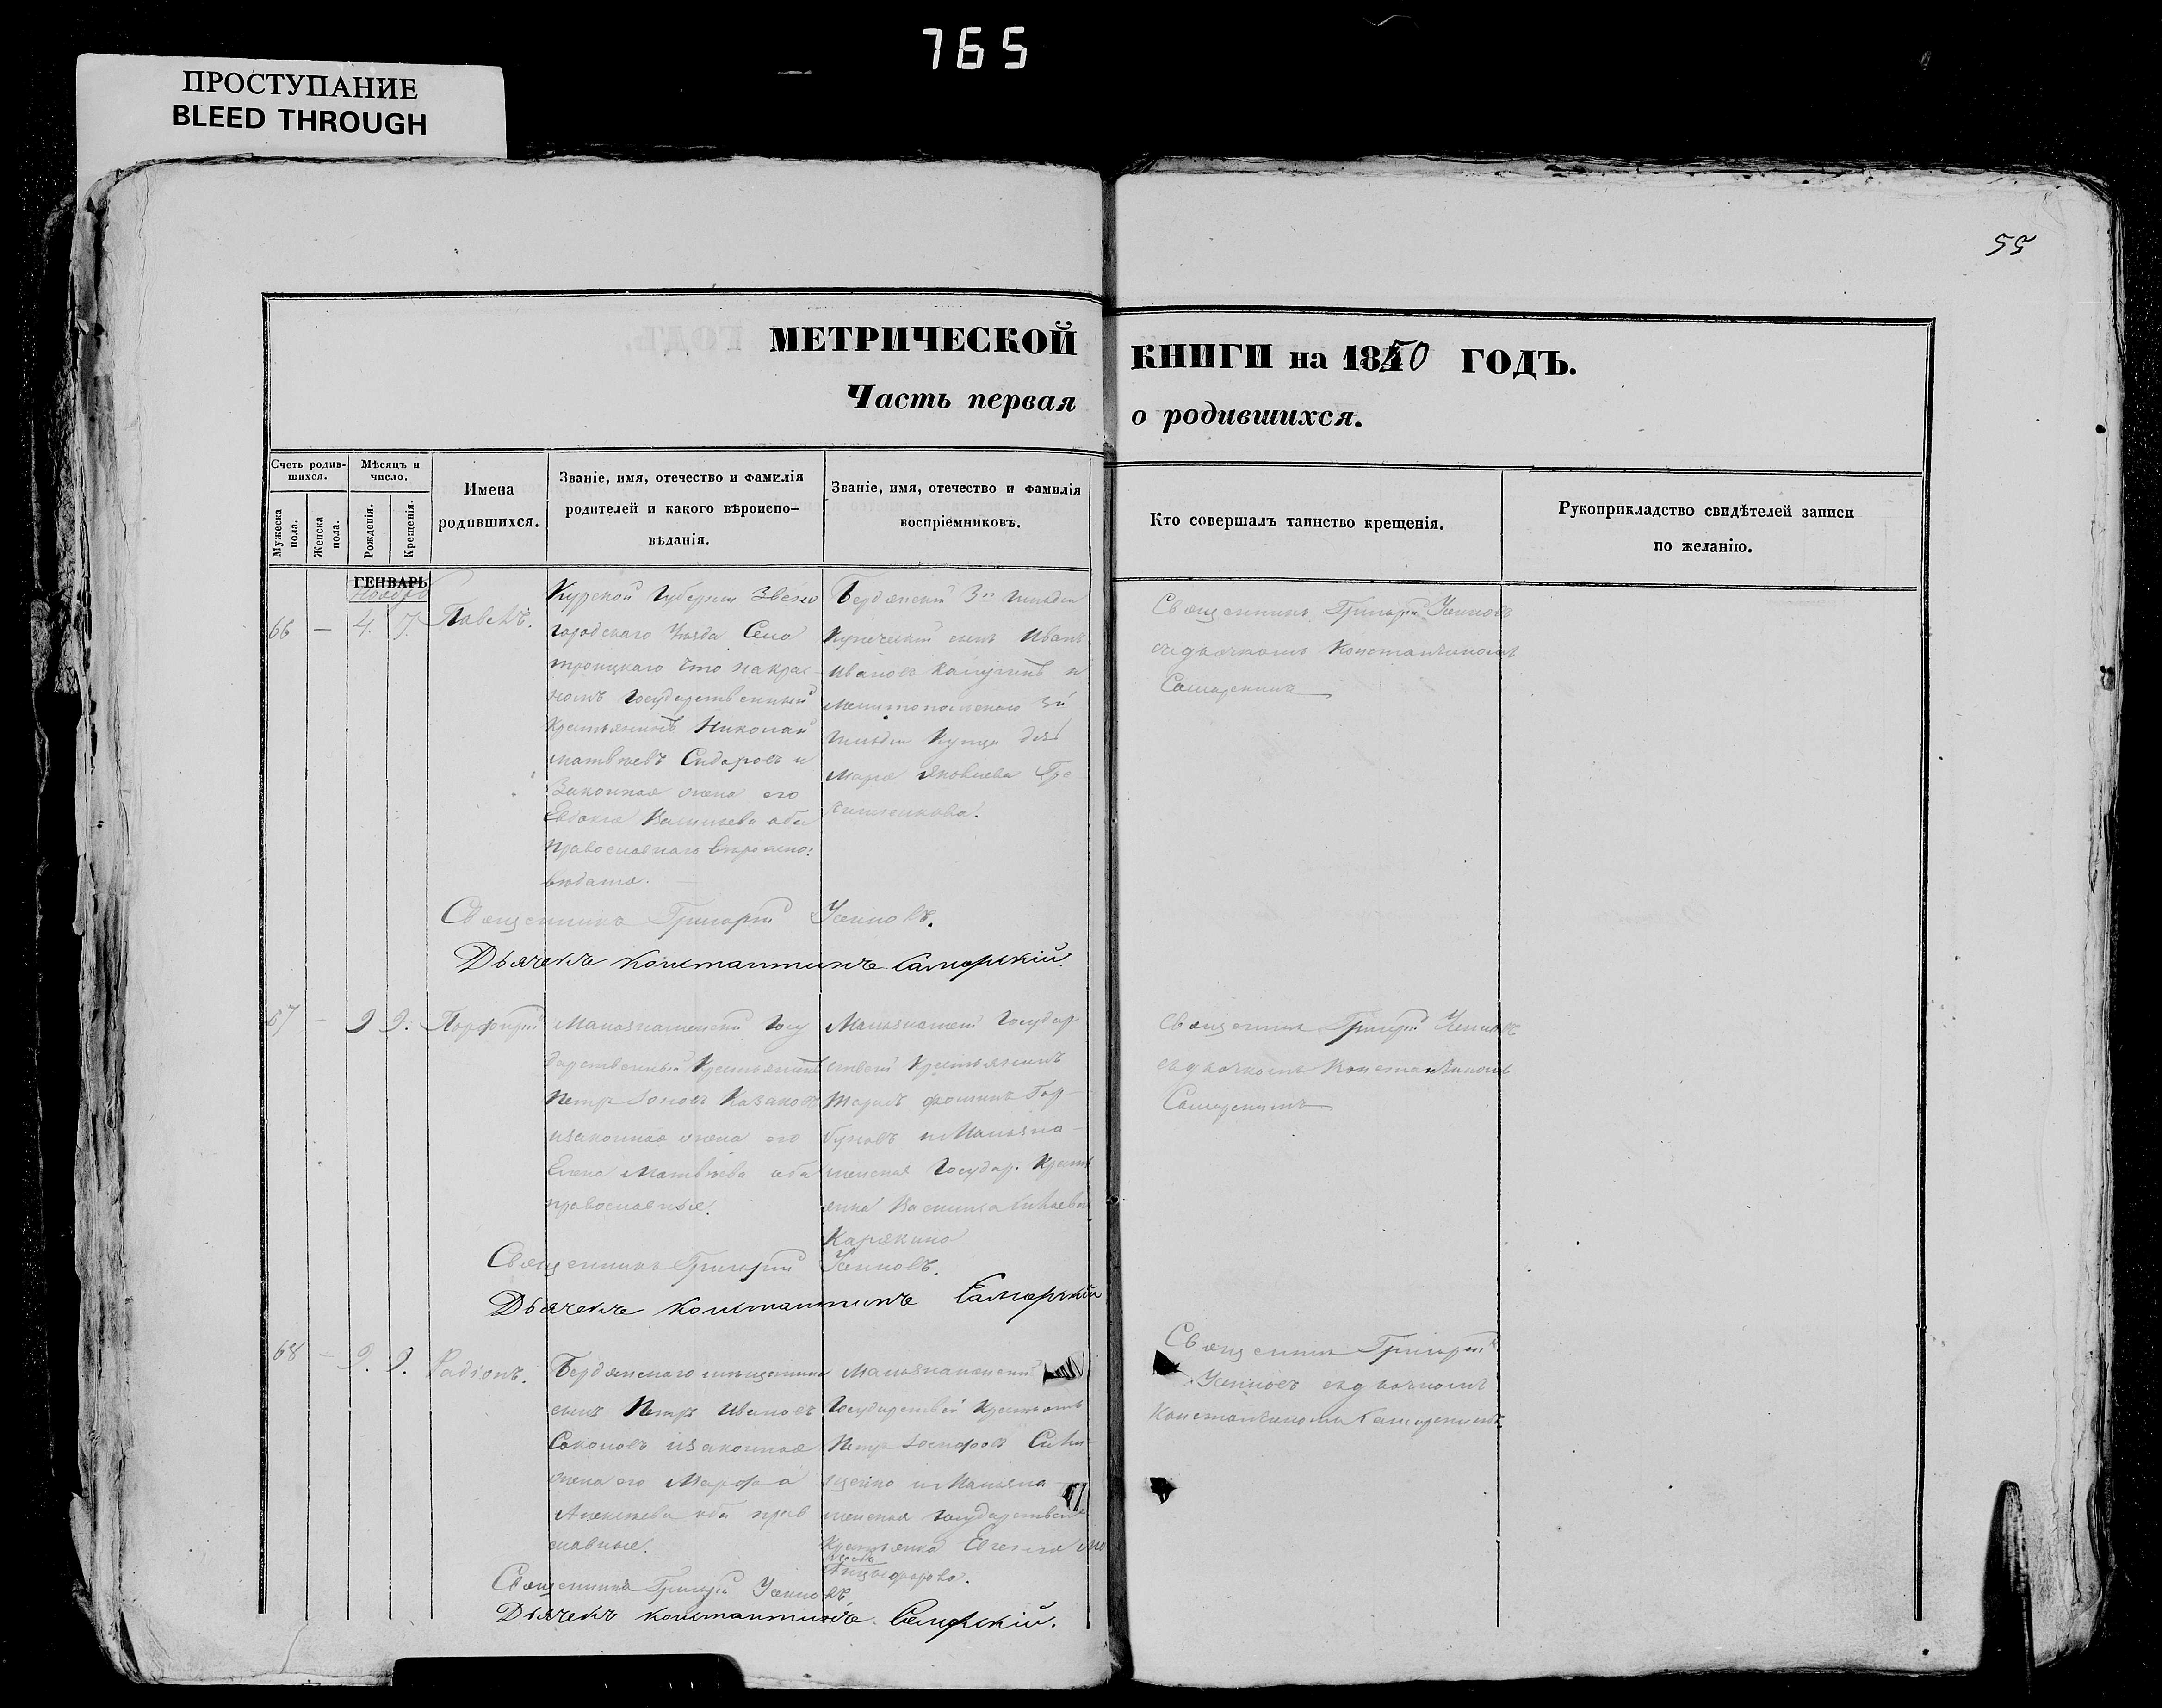 765
ПРОСТУПАНИЕ
BLEED THROUGH
55
МЕТРИЧЕСКОЙ КНИГИ на 1850 ГОДЪ.
Часть первая о родившихся.
Счетъ родив-
шихся.
Мужеска пола.
Женска пола.
Мѣсяцъ и
число.
Рожденія.
Крещенія.
Имена
родившихся.
Званіе, имя, отечество и фамилія
родителей и какого вѣроиспо-
вѣданія.
Званіе, имя, отечество и фамилія
воспріемниковъ.
Кто совершалъ таинство крещенія.
Рукоприкладство свидѣтелей записи
по желанію.
ГЕНВАРЬ
Ноябрь
66 — 4. 7. Павелъ.
Курской Губерніи
городскаго Уѣзда Села
троицкаго что на крас-
номъ Государственный
Крестьянинъ Николай
матвѣевъ Сидоровъ и
Законная жена его
Евдокія Васильева оба
православнаго вѣроиспо:
вѣданія.
Бердянскій 3й гильдіи
Купеческій сынъ Иванъ
Ивановъ и
Мелитопольскаго 3й
гильдіи Купца дочь
Марія Яковлева
Священникъ Григорій
съ дьячкомъ Константиномъ
Самарскимъ
Священникъ Григорій
Дьячекъ Константинъ Самарскій.
67 — 9 9. Порфирій
Малознаменскій Госу
дарственный Крестьянинъ
Петръ Козаковъ
и законная жена его
Елена Матвѣева оба
православные.
Государ
Крестьянинъ
Тарасъ Фоминъ Гор-
буновъ и Малозна-
менская Государ. Крест
янка Василиса
Карякина
Священникъ Григорій
съ дьячкомъ Константиномъ
Самарскимъ
Священникъ Григорій
Дьячекъ Константинъ Самарскій
68 — 9. 9. Радіонъ.
Бердянскаго мѣщанина
сынъ Петръ Ивановъ
Соколовъ и законная
жена его Марфа
Алексѣева оба прав
славные.
Малознаменскій
Крестьянинъ
Петръ
и Малозна
менская Государствен
Крестьянка Евгенія
Священникъ Григорій
съ дьячкомъ
Константиномъ Самарскимъ
Священникъ Григорій
Дьячекъ Константинъ Самарскій.